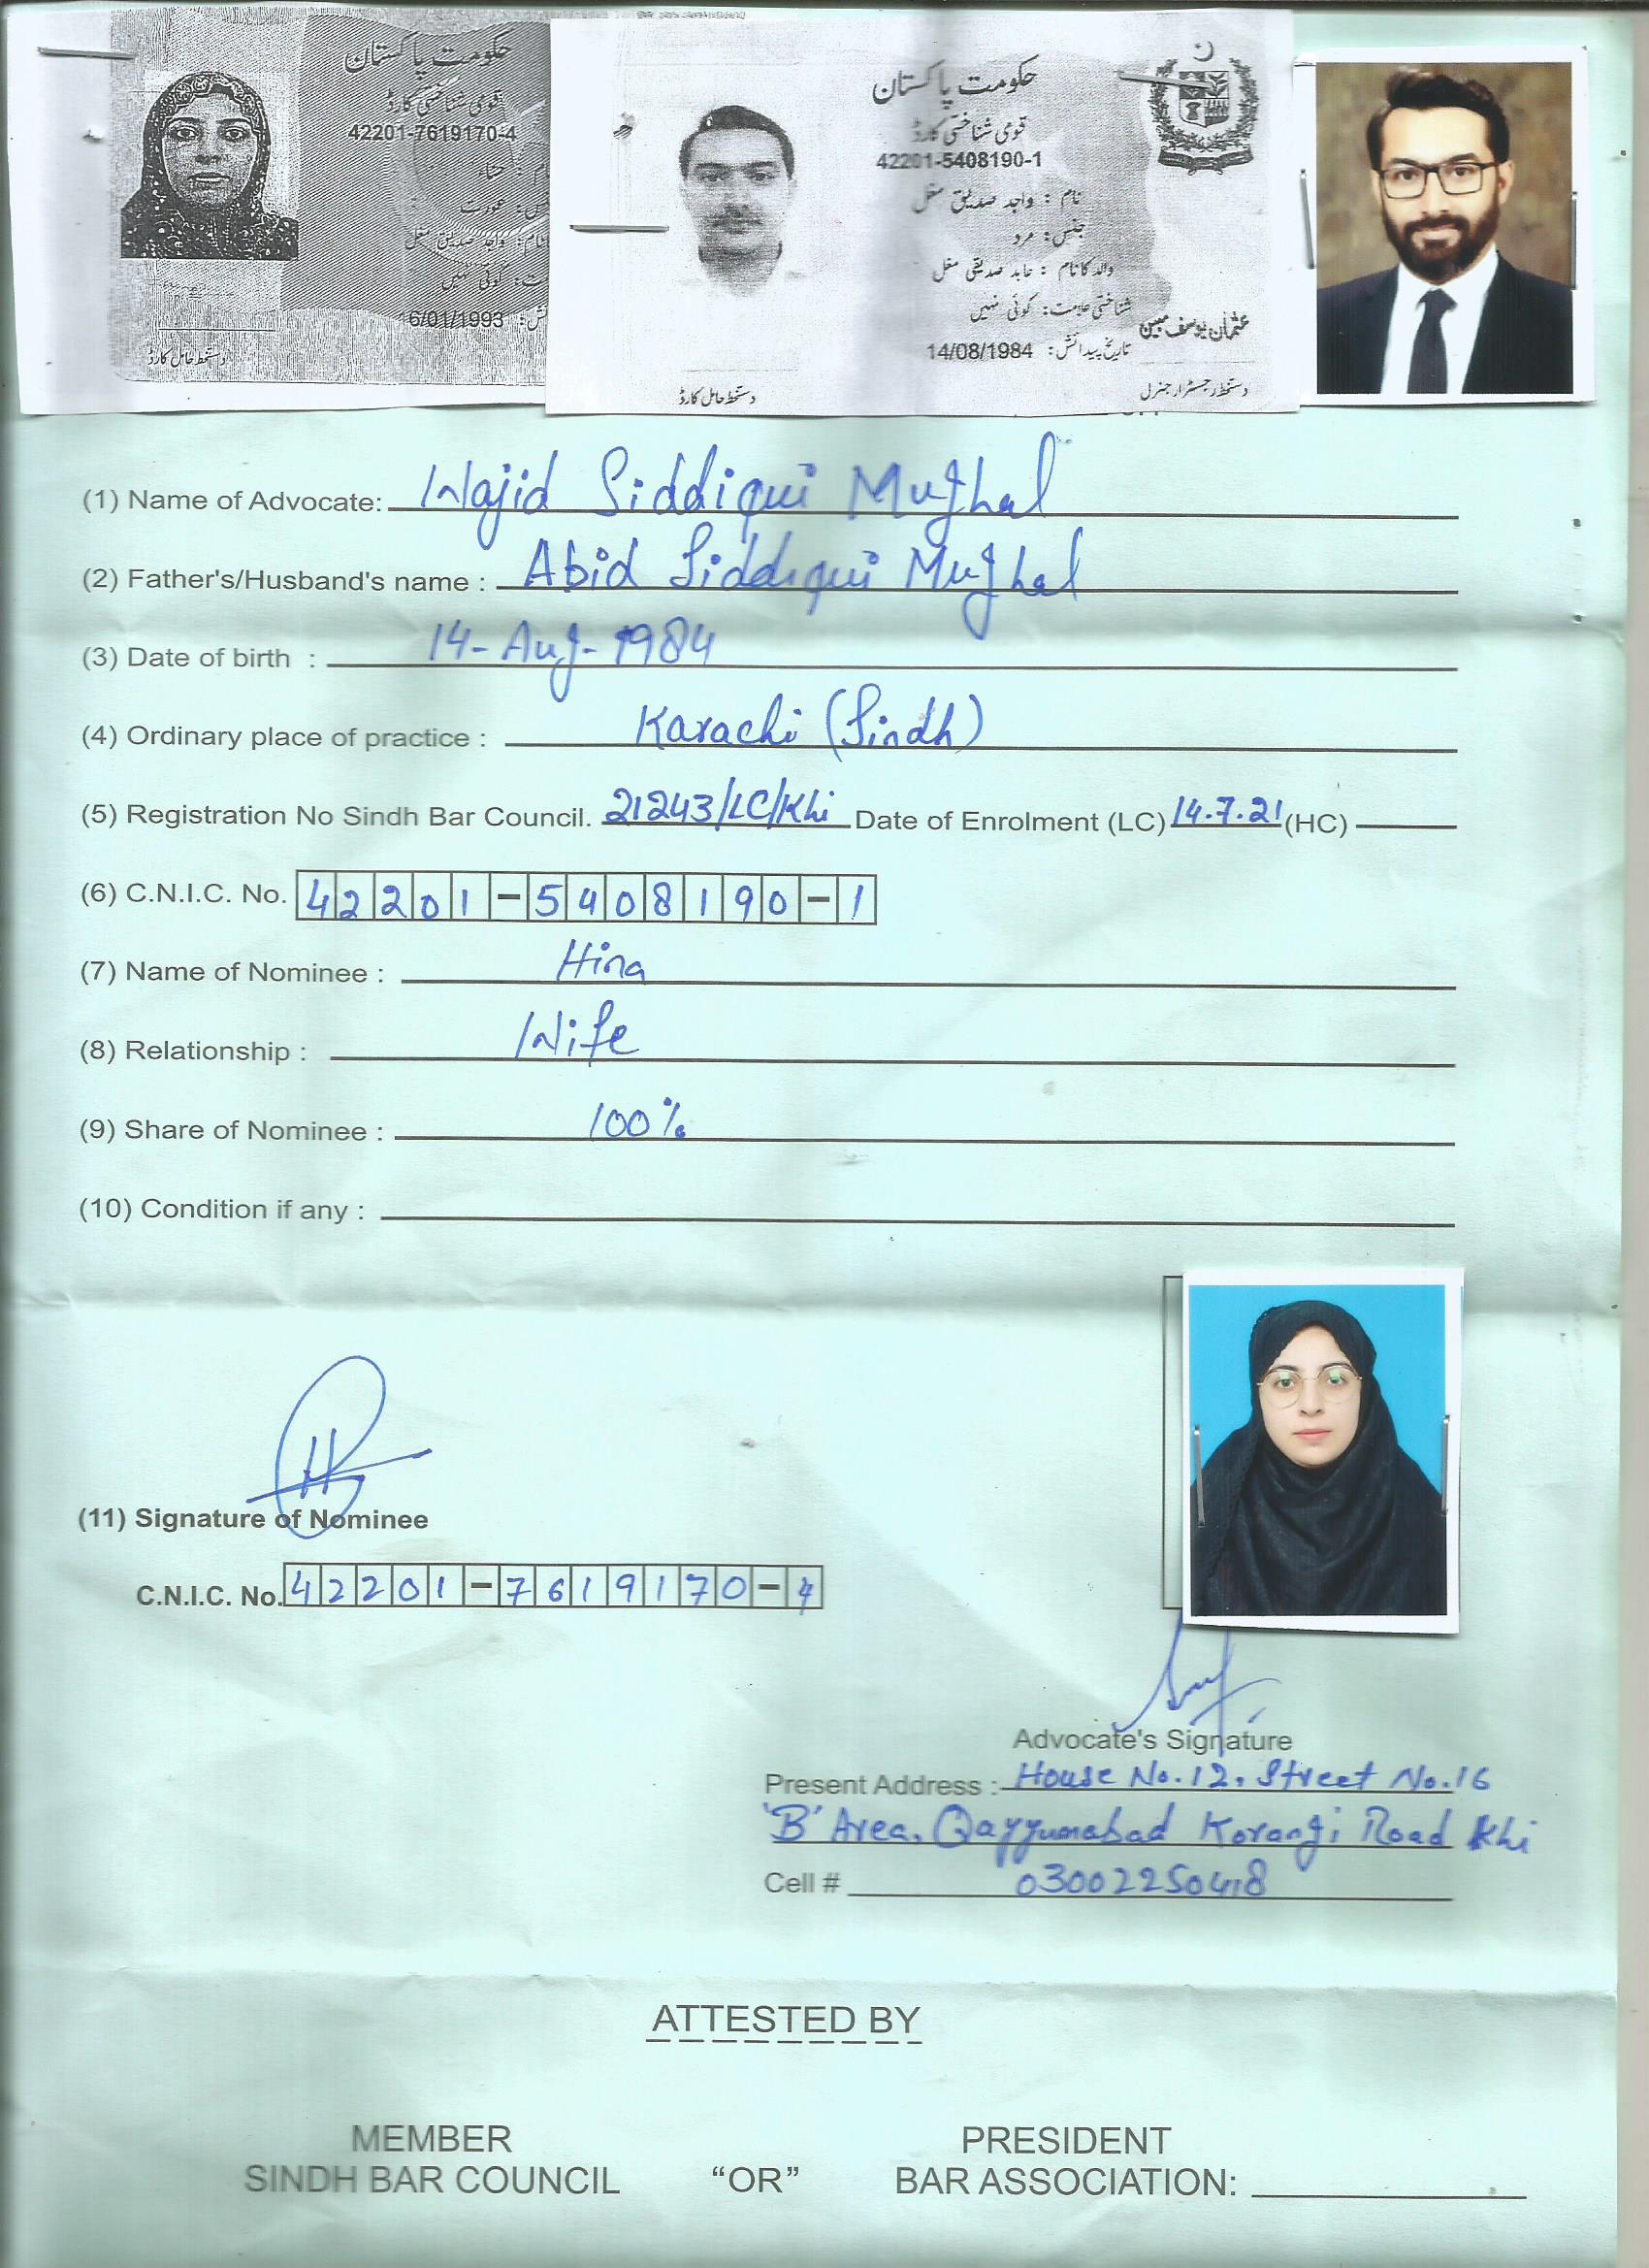 حکومت پاکستان
قومی شناختی کارڈ
42201-7619170-4
نام : حناء
جنس: عورت
نام: واجد صدیق مغل
کوئی نہیں
6/01/1993
دستخط حامل کارڈ
حکومت پاکستان
قومی شناختی کارڈ
42201-5408190-1
نام : واجد صدیق مغل
جنس: مرد
والد کا نام : عابد صدیقی مغل
شناختی علامت: کوئی نہیں
تاریخ پیدائش: 14/08/1984
عثمان یوسف مبین
دستخط حامل کارڈ
دستخط رجسٹرار جنرل
(1) Name of Advocate: Wajid Siddiqui Mughal
(2) Father's/Husband's name : Abid Siddiqui Mughal
(3) Date of birth : 14-Aug-1984
(4) Ordinary place of practice : Karachi (Sindh)
(5) Registration No Sindh Bar Council. 21243/LC/Khi Date of Enrolment (LC) 14.7.21 (HC)
(6) C.N.I.C. No. 42201-5408190-1
(7) Name of Nominee : Hina
(8) Relationship : Wife
(9) Share of Nominee : 100%
(10) Condition if any :
(11) Signature of Nominee
C.N.I.C. No. 42201-7619170-4
Advocate's Signature
Present Address : House No.12, Street No.16
'B' Area, Qayyumabad Korangi Road Khi
Cell # 03002250418
ATTESTED BY
MEMBER
SINDH BAR COUNCIL
"OR"
PRESIDENT
BAR ASSOCIATION: